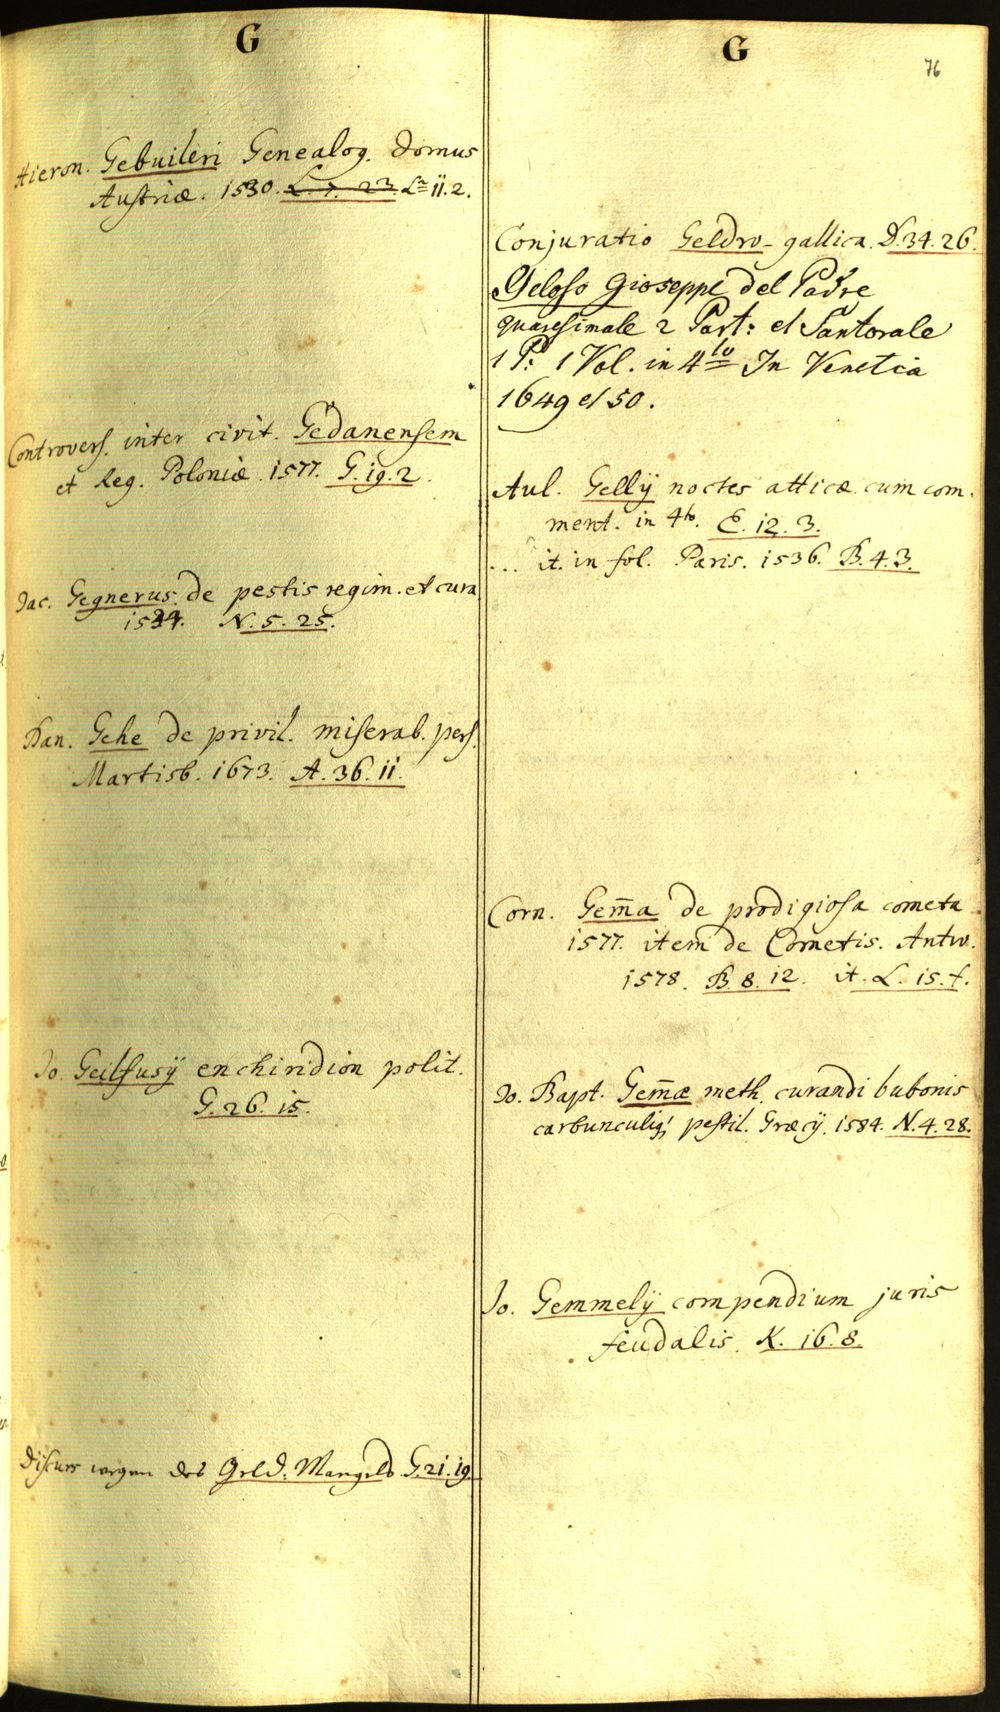 G
Hieron. Gebuileri Genealog. Domus
Austriæ. 1530. L. 7. 23. La ii. 2.
Controvers. inter civit. Gedanensem
et Reg. Poloniæ 1577. G. ig. 2.
Jac. Gegnerus de pestis regim. et cura
N. 5. 25.
Dan. Gehe de privil. miserab. pers.
Martisb. 1673. A. 36. ii.
Jo. Geilfusÿ enchiridion polit.
G. 26. i5.
Discurs wegen des Geld. Mangels G. 2i. ig.
G
76
Conjuratio Geldro-gallica. D. 34. 26.
Geloso Gioseppe del Padre
quaresimale 2 Part: et Santorale
1 P: 1 Vol. in 4to In Venetia
1649 et 50.
Aul. Gellÿ noctes atticæ cum com.
ment. in 4to. E. i2. 3.
... it. in fol. Paris. 1536. B. 4. 3.
Corn. Gem̄a de prodigiosa cometa
1577. item de Cometis. Antw.
1578. B. 8. i2. it. L. i5. f.
Jo. Bapt. Gem̄æ meth. curandi bubonis
carbunculiq; pestil. Græcÿ. 1584. N. 4. 28.
Jo. Gemmelÿ compendium juris
feudalis. K. i6. 8.